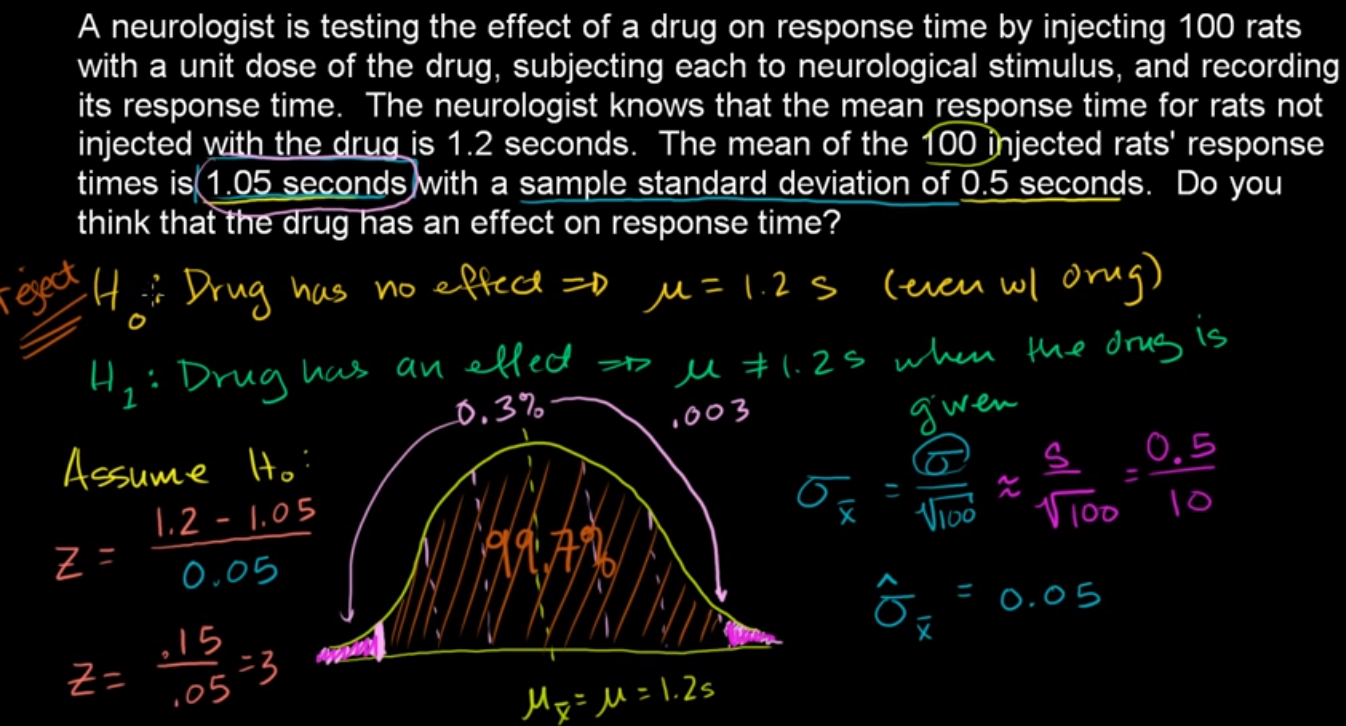 A neurologist is testing the effect of a drug on response time by injecting 100 rats
with a unit dose of the drug, subjecting each to neurological stimulus, and recording
its response time. The neurologist knows that the mean response time for rats not
injected with the drug is 1.2 seconds. The mean of the 100 injected rats' response
times is 1.05 seconds with a sample standard deviation of 0.5 seconds. Do you
think that the drug has an effect on response time?
reject H₀: Drug has no effect ⇒ μ = 1.2 s (even w/ drug)
H₁: Drug has an effect ⇒ μ ≠ 1.2 s when the drug is
given
0.3% .003
Assume H₀:
σx̄ = σ/√100 ≈ s/√100 = 0.5/10
z = (1.2 - 1.05)/0.05
99.7%
σ̂x̄ = 0.05
z = .15/.05 = 3
μx̄ = μ = 1.2s